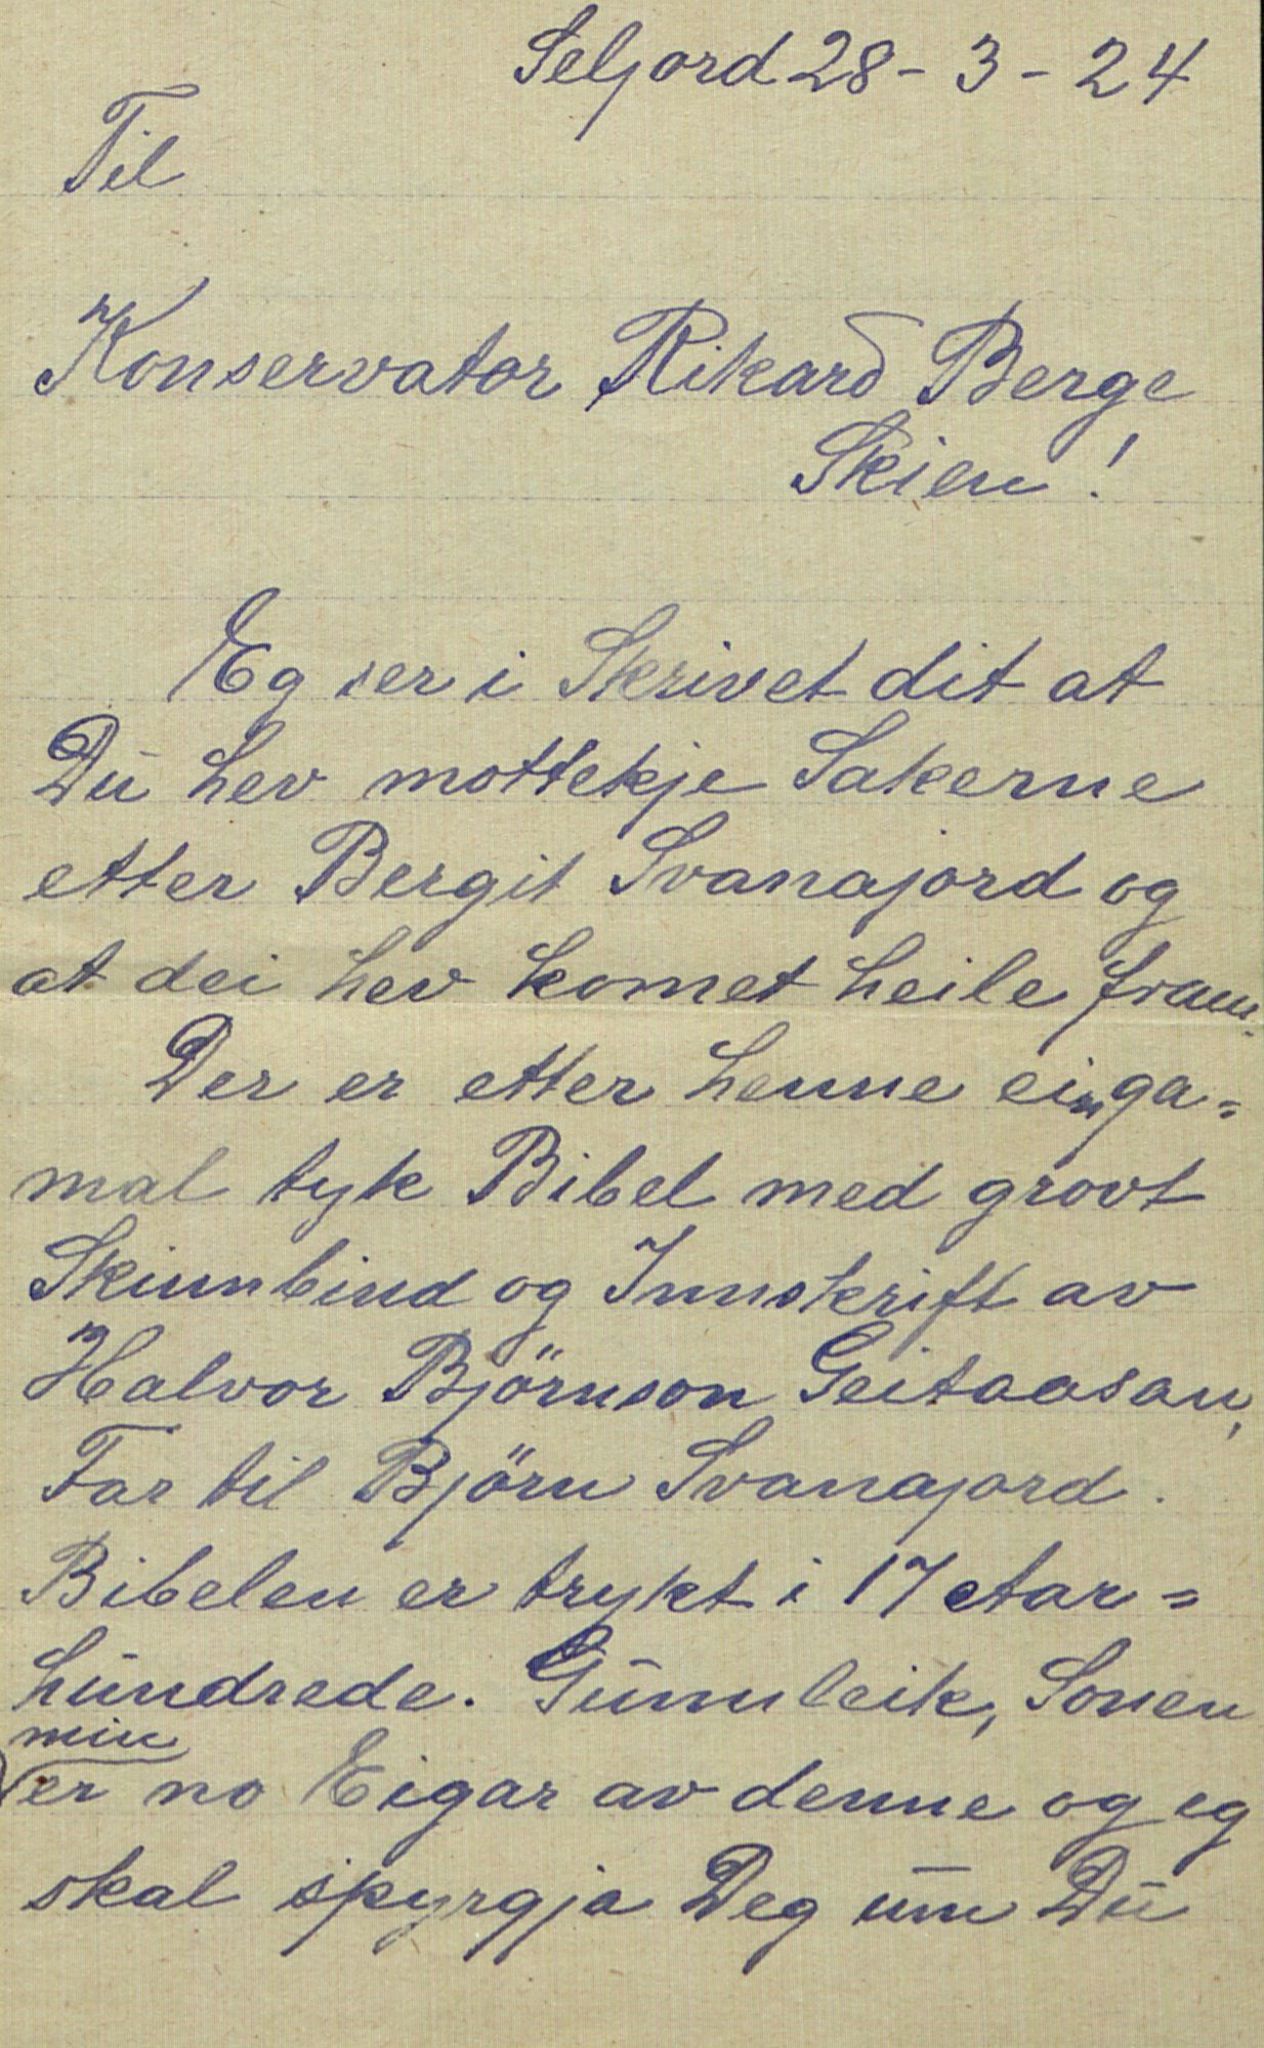 Seljord 28 - 3 - 24
Til
Konservator Rikard Berge
Skien!
Eg ser i Skrivet dit at
Du hev mottekje Sakerne
etter Bergit Svanajord og
at dei hev komet heile fram.
Der er etter henne ein ga=
mal tyk Bibel med grovt
Skinnbind og Innskrift av
Halvor Björnson Geitaasan,
Far til Björn Svanajord.
Bibelen er trykt i 17 Aar=
hundrede. Gunnleik, Sonen
min
er no Eigar av denne og eg
skal spyrgja Deg um Du